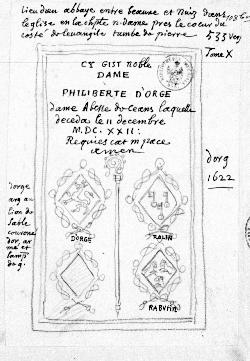 Lieu dieu abbaye entre beaune et Nuiz dans
leglise en la chple n-dame pres le coeur du
costé de leuangile tumbe de pierre
108
533 ver
Tome X
CY GIST NOBLE
DAME
PHILIBERTE D'ORGE
dame Abesse de ceans laquelle
deceda le 11 decembre
M.DC.XXII:
Requiescat in pace
amen
dorg
1622
dorge
arg au
lion de
sable
couroné
dor, ar
mé et
lamp
de g.
DORGE
RALIN
RABUTIN